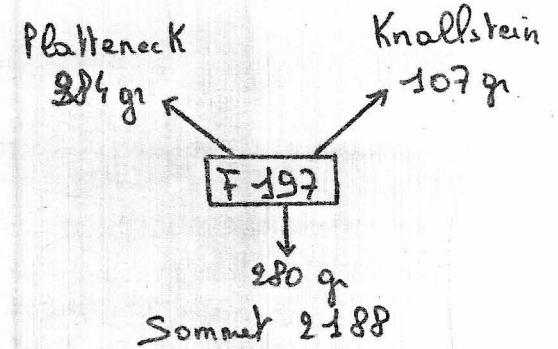 Platteneck
284 gr
Knallstein
107 gr
F 197
280 gr
Sommet 2188